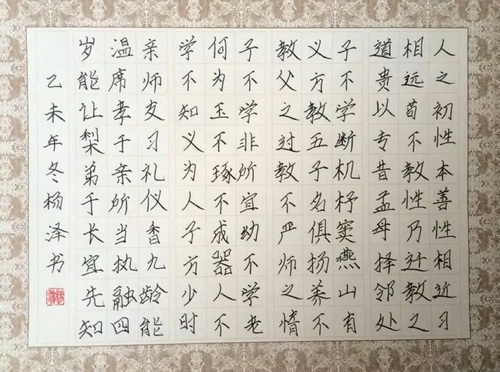 人之初性本善性相近习
相远苟不教性乃迁教之
道贵以专昔孟母择邻处
子不学断机杼窦燕山有
义方教五子名俱扬养不
教父之过教不严师之惰
子不学非所宜幼不学老
何为玉不琢不成器人不
学不知义为人子方少时
亲师友习礼仪香九龄能
温席孝于亲所当执融四
岁能让梨弟于长宜先知
乙未年冬杨泽书